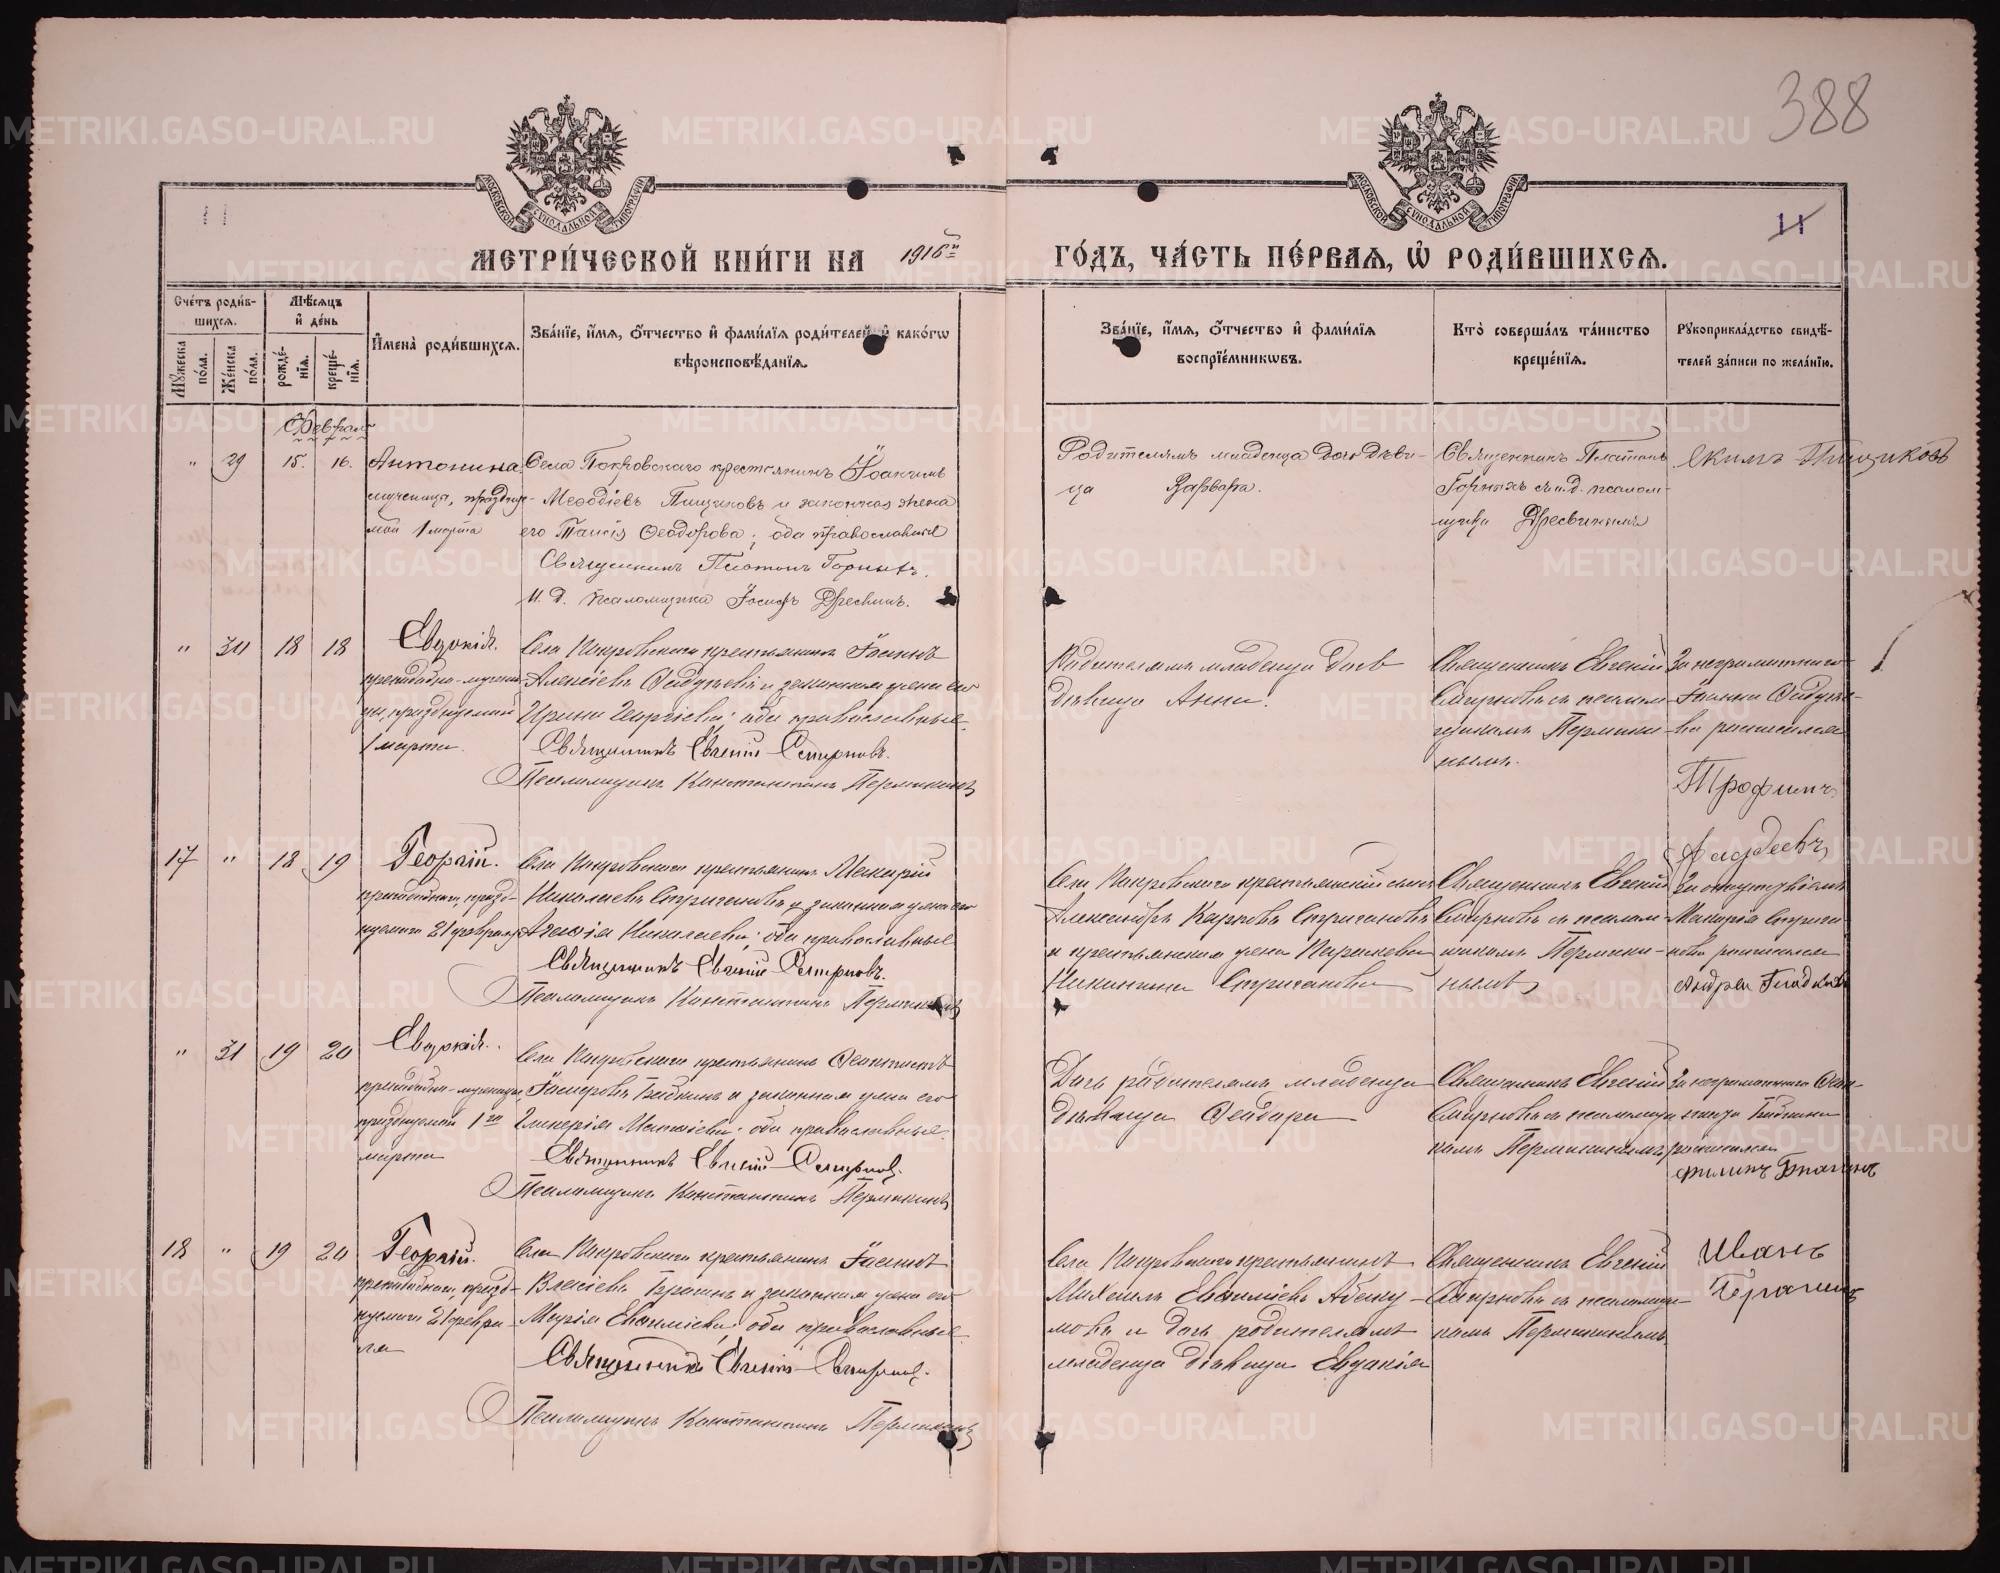 388
МОСКОВСКОЙ СѴНОДАЛЬНОЙ ТИПОГРАФІИ
МОСКОВСКОЙ СѴНОДАЛЬНОЙ ТИПОГРАФІИ
11
11
МЕТРИ́ЧЕСКОЙ КНИ́ГИ НА 1916й ГО́ДЪ, ЧА́СТЬ ПЕ́РВАЯ, Ѡ҆ РОДИ́ВШИХСЯ.
Сче́тъ роди́в-
шихся.
Мѣ́сяцъ
и҆ де́нь
Мꙋ́жеска по́ла.
Же́нска по́ла.
рожде́-
нїя.
креще́-
нїя.
И҆мена̀ роди́вшихся.
Зва́нїе, и҆́мя, ѻ҆́тчество и҆ фами́лїя роди́телей, и҆ како́гѡ
вѣроисповѣ́данїя.
Зва́нїе, и҆́мя, ѻ҆́тчество и҆ фами́лїя
воспрїе́мникѡвъ.
Кто̀ соверша́лъ та́инство
креще́нїя.
Рꙋкоприкла́дство свидѣ́-
телей за́писи по жела́нїю.
Феврал
" 29 15. 16.
Антонина
мученица, праздну-
мой 1 марта
Села Покровскаго крестьянинъ Іоакимъ
Меѳодіевъ Пищиковъ и законная жена
его Таисія Ѳеодорова; оба православные
Священникъ Платонъ Горныхъ.
И. д. псаломщика Іосифъ Дресвинъ.
Родителямъ младенца дочь дѣви-
ца Варвара.
Священникъ Платонъ
Горныхъ съ и. д. псалом-
щика Дресвинымъ
Якимъ Пищиковъ
" 30 18 18
Евдокія.
преподобно-мучени-
цы, празднуемой
1 марта.
Села Покровскаго крестьянинъ Іоаннъ
Алексіевъ и законная жена его
Ирина Георгіева; оба православные.
Священникъ Евгеній Смирновъ.
Псаломщикъ Константинъ Пермикинъ
Родителямъ младенца дочь
дѣвица Анна.
Священникъ Евгеній
Смирновъ съ псалом-
щикомъ Пермики-
нымъ.
За неграмотнаго
Іоанна
росписался
Трофимъ
17 " 18 19
Георгій.
преподобнаго, празд-
нуемаго 21 февраля
Села Покровскаго крестьянинъ Макарій
Николаевъ Стригановъ и законная жена его
Николаева; оба православные
Священникъ Евгеній Смирновъ.
Псаломщикъ Константинъ Пермикинъ
Села Покровскаго крестьянскій сынъ
Александръ Карповъ Стригановъ
и крестьянская жена Параскева
Никитина Стриганова
Священникъ Евгеній
Смирновъ съ псалом-
щикомъ Пермики-
нымъ
За отсутствіемъ
Макарія Стрига-
нова росписался
Андрей Гладкихъ
" 31 19 20
Евдокія.
преподобно-мученицы
празднуемой 1го
марта
Села Покровскаго крестьянинъ
и законная жена его
Гликерія; оба православные.
Священникъ Евгеній Смирновъ.
Псаломщикъ Константинъ Пермикинъ
Дочь родителямъ младенца
дѣвица Ѳеодора
Священникъ Евгеній
Смирновъ съ псаломщи-
комъ Пермикинымъ
За неграмотнаго
росписался
Филипъ
18 " 19 20
Георгій.
преподобнаго, празд-
нуемаго 21 февра-
ля
Села Покровскаго крестьянинъ Іоаннъ
Власіевъ и законная жена его
Марія; оба православные.
Священникъ Евгеній Смирновъ.
Псаломщикъ Константинъ Пермикинъ
Села Покровскаго крестьянинъ
Михаилъ Абаку-
мовъ и дочь родителямъ
младенца дѣвица Евдокія
Священникъ Евгеній
Смирновъ съ псаломщи-
комъ Пермикинымъ
Иванъ
METRIKI.GASO-URAL.RU